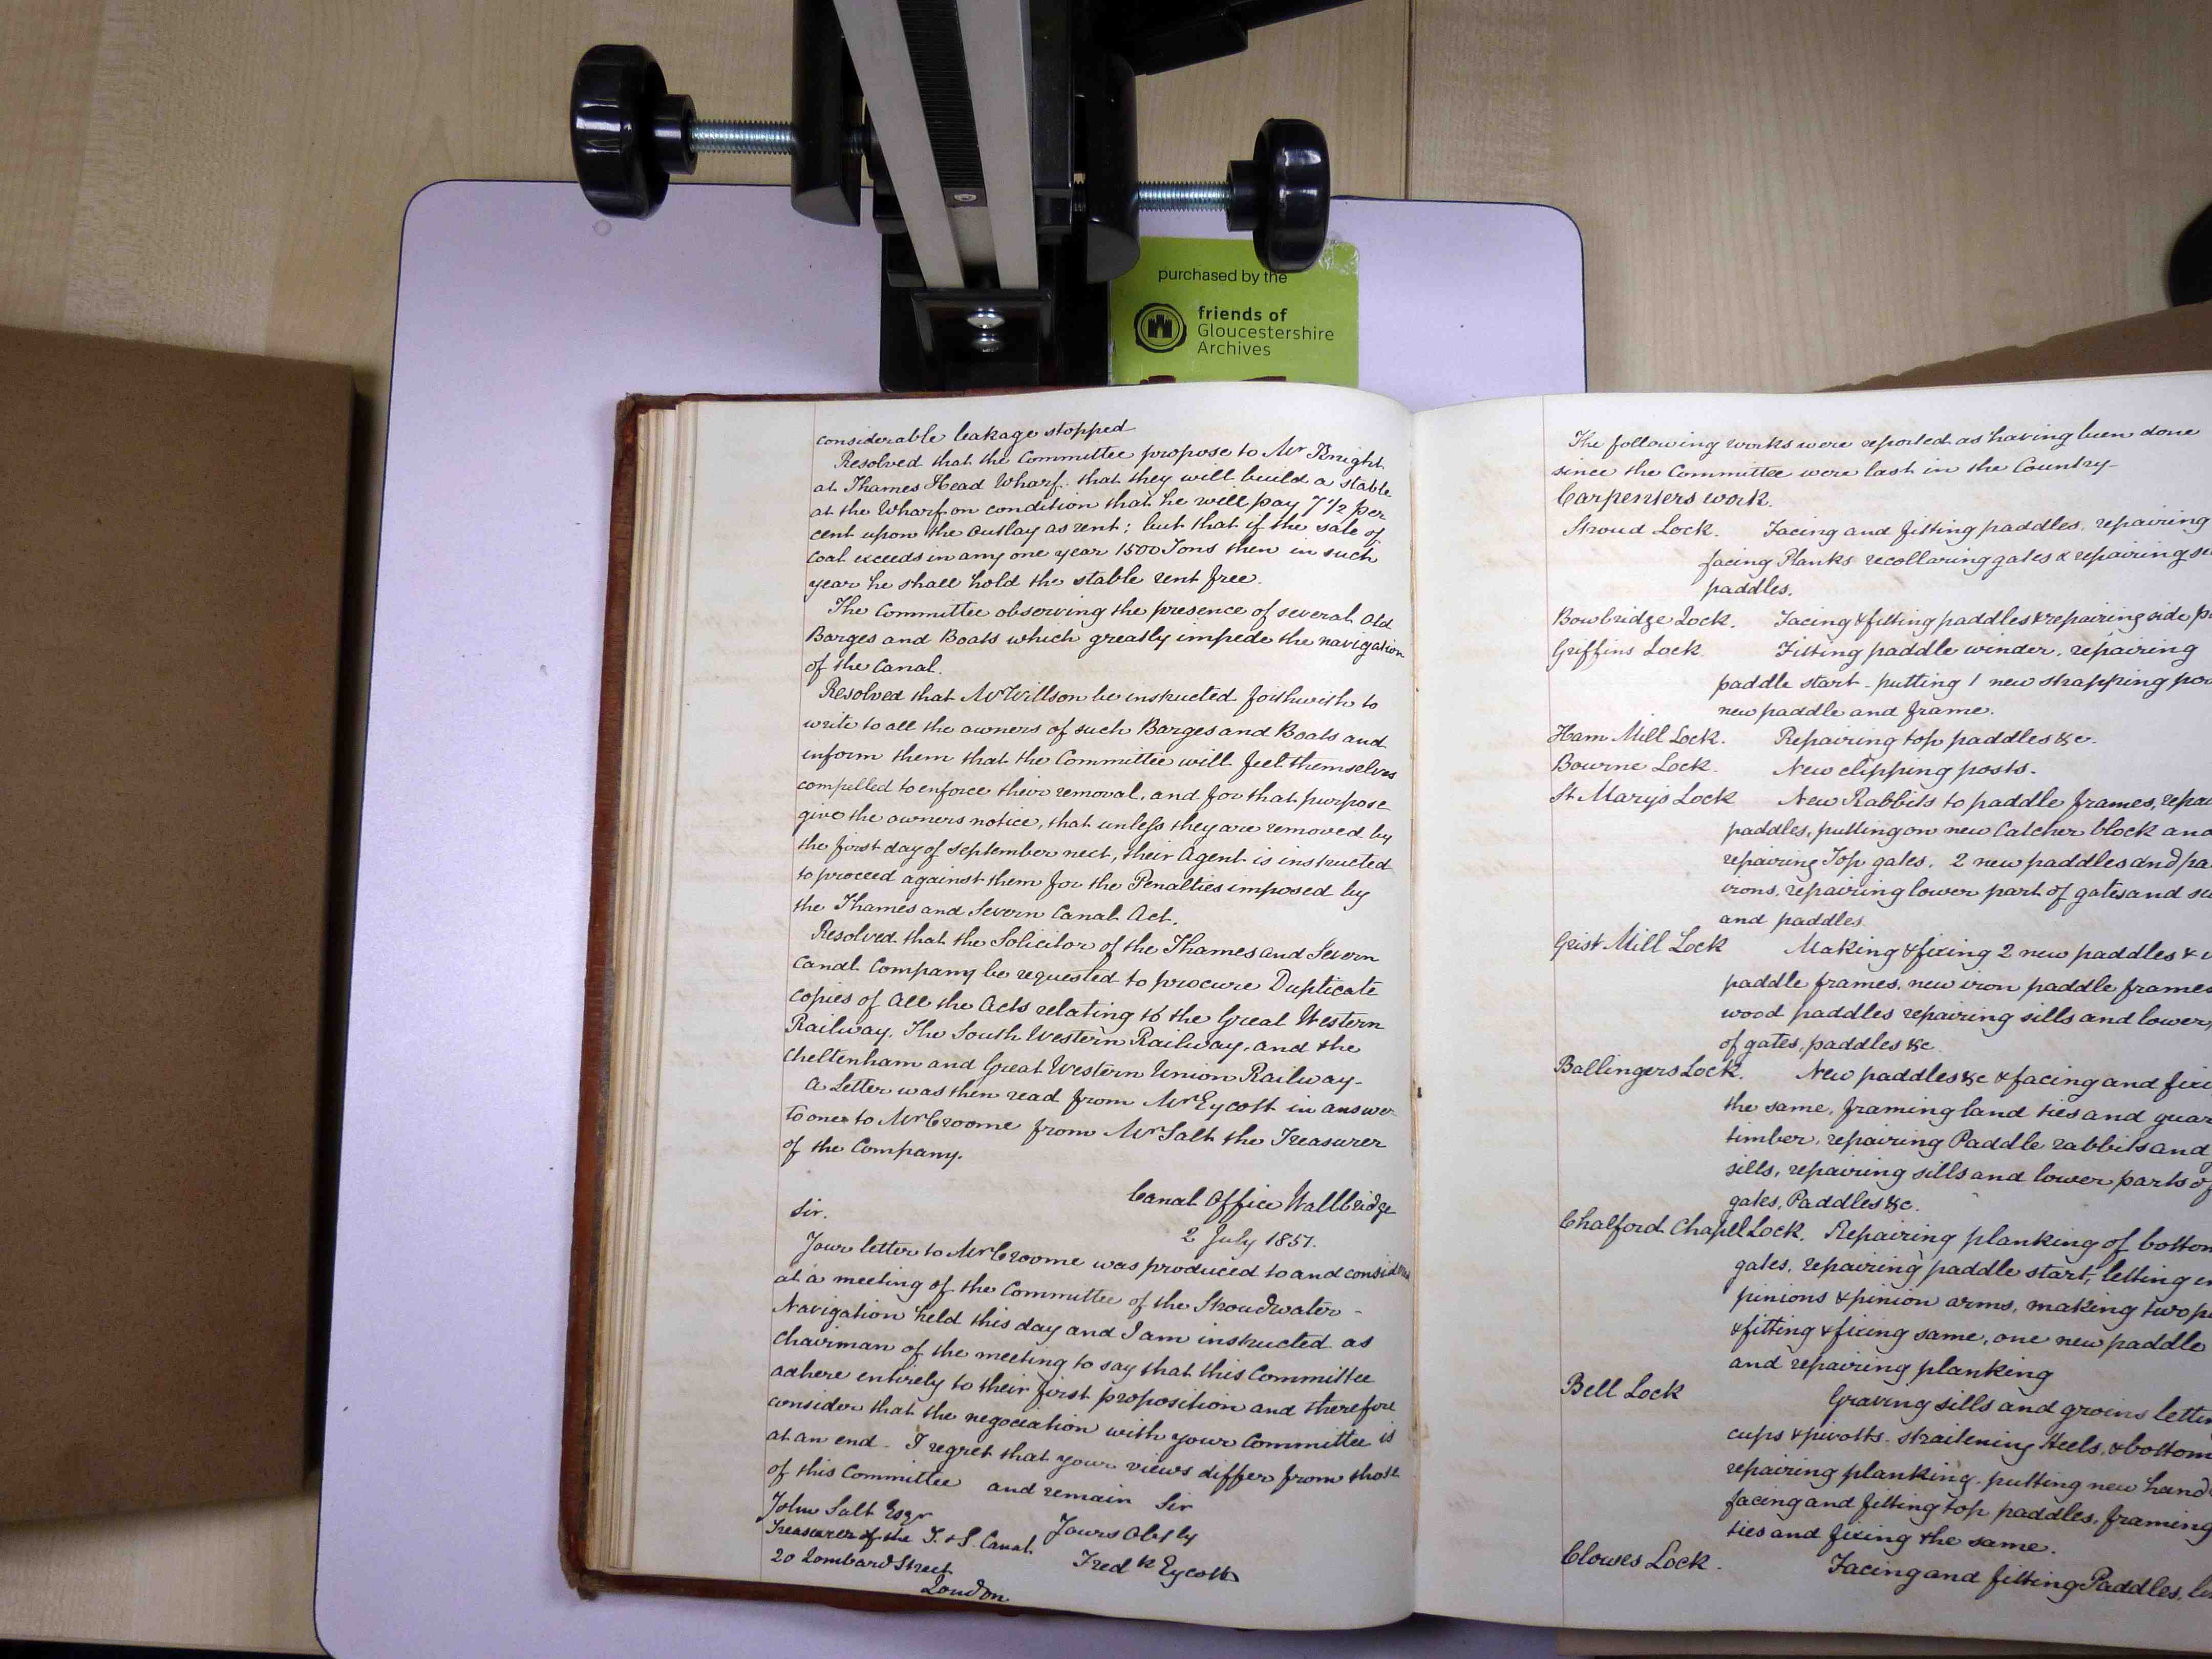 purchased by the
friends of
Gloucestershire
Archives
considerable leakage stopped
Resolved that the Committee propose to Mr Knight
at Thames Head Wharf. that they will build a stable
at the Wharf on condition that he will pay 7 1/2 per
cent upon the outlay as rent; but that if the sale of
Coal exceeds in any one year 1500 Tons then in such
year he shall hold the stable rent free.
The Committee observing the presence of several Old
Barges and Boats which greatly impede the navigation
of the Canal.
Resolved that Mr Willson be instructed forthwith to
write to all the owners of such Barges and Boats and
inform them that the Committee will feel themselves
compelled to enforce their removal, and for that purpose
give the owners notice, that unless they are removed by
the first day of September next, their Agent is instructed
to proceed against them for the Penalties imposed by
the Thames and Severn Canal Act.
Resolved that the Solicitor of the Thames and Severn
Canal Company be requested to procure Duplicate
copies of all the Acts relating to the Great Western
Railway, The South Western Railway, and the
Cheltenham and Great Western Union Railway-
A Letter was then read from Mr Eycott in answer
to one to Mr Croome from Mr Salt the Treasurer
of the Company.
Canal Office Wallbridge
2 July 1851.
Sir.
Your letter to Mr Croome was produced to and considered
at a meeting of the Committee of the Stroudwater -
Navigation held this day and I am instructed as
Chairman of the meeting to say that this Committee
adhere entirely to their first proposition and therefore
consider that the negociation with your Committee is
at an end - I regret that your views differ from those
of this Committee and remain Sir
John Salt Esqr
Yours Obtly
Treasurer of the T. & S. Canal
Fredk Eycott
20 Lombard Street
London
The following works were reported as having been done
since the Committee were last in the Country-
Carpenters work.
Stroud Lock. Facing and fitting paddles, repairing
facing Planks recollaring gates & repairing
paddles.
Bowbridge Lock. Facing & fitting paddles & repairing side
Griffins Lock Fitting paddle winder, repairing
paddle start - putting 1 new strapping
new paddle and frame.
Ham Mill Lock. Repairing top paddles &c.
Bourne Lock. New clipping posts.
St Marys Lock New Rabbits to paddle frames,
paddles, putting on new Catcher block and
repairing Top gates, 2 new paddles and
irons, repairing lower part of gates and
and paddles.
Grist Mill Lock Making & fixing 2 new paddles &
paddle frames, new iron paddle frames
wood paddles repairing sills and lower
of gates, paddles &c
Ballingers Lock. New paddles &c & facing and
the same, framing land ties and
timber, repairing Paddle rabbits and
sills, repairing sills and lower parts of
gates, Paddles &c.
Chalford Chapel Lock. Repairing planking of
gates, repairing paddle start, letting
pinions & pinion arms, making two
& fitting & fixing same, one new paddle
and repairing planking
Bell Lock Graving sills and groins
cups & pivotts - straitening Heels, &
repairing planking, putting new
facing and fitting top paddles, framing
ties and fixing the same.
Clowes Lock. Facing and fitting Paddles,